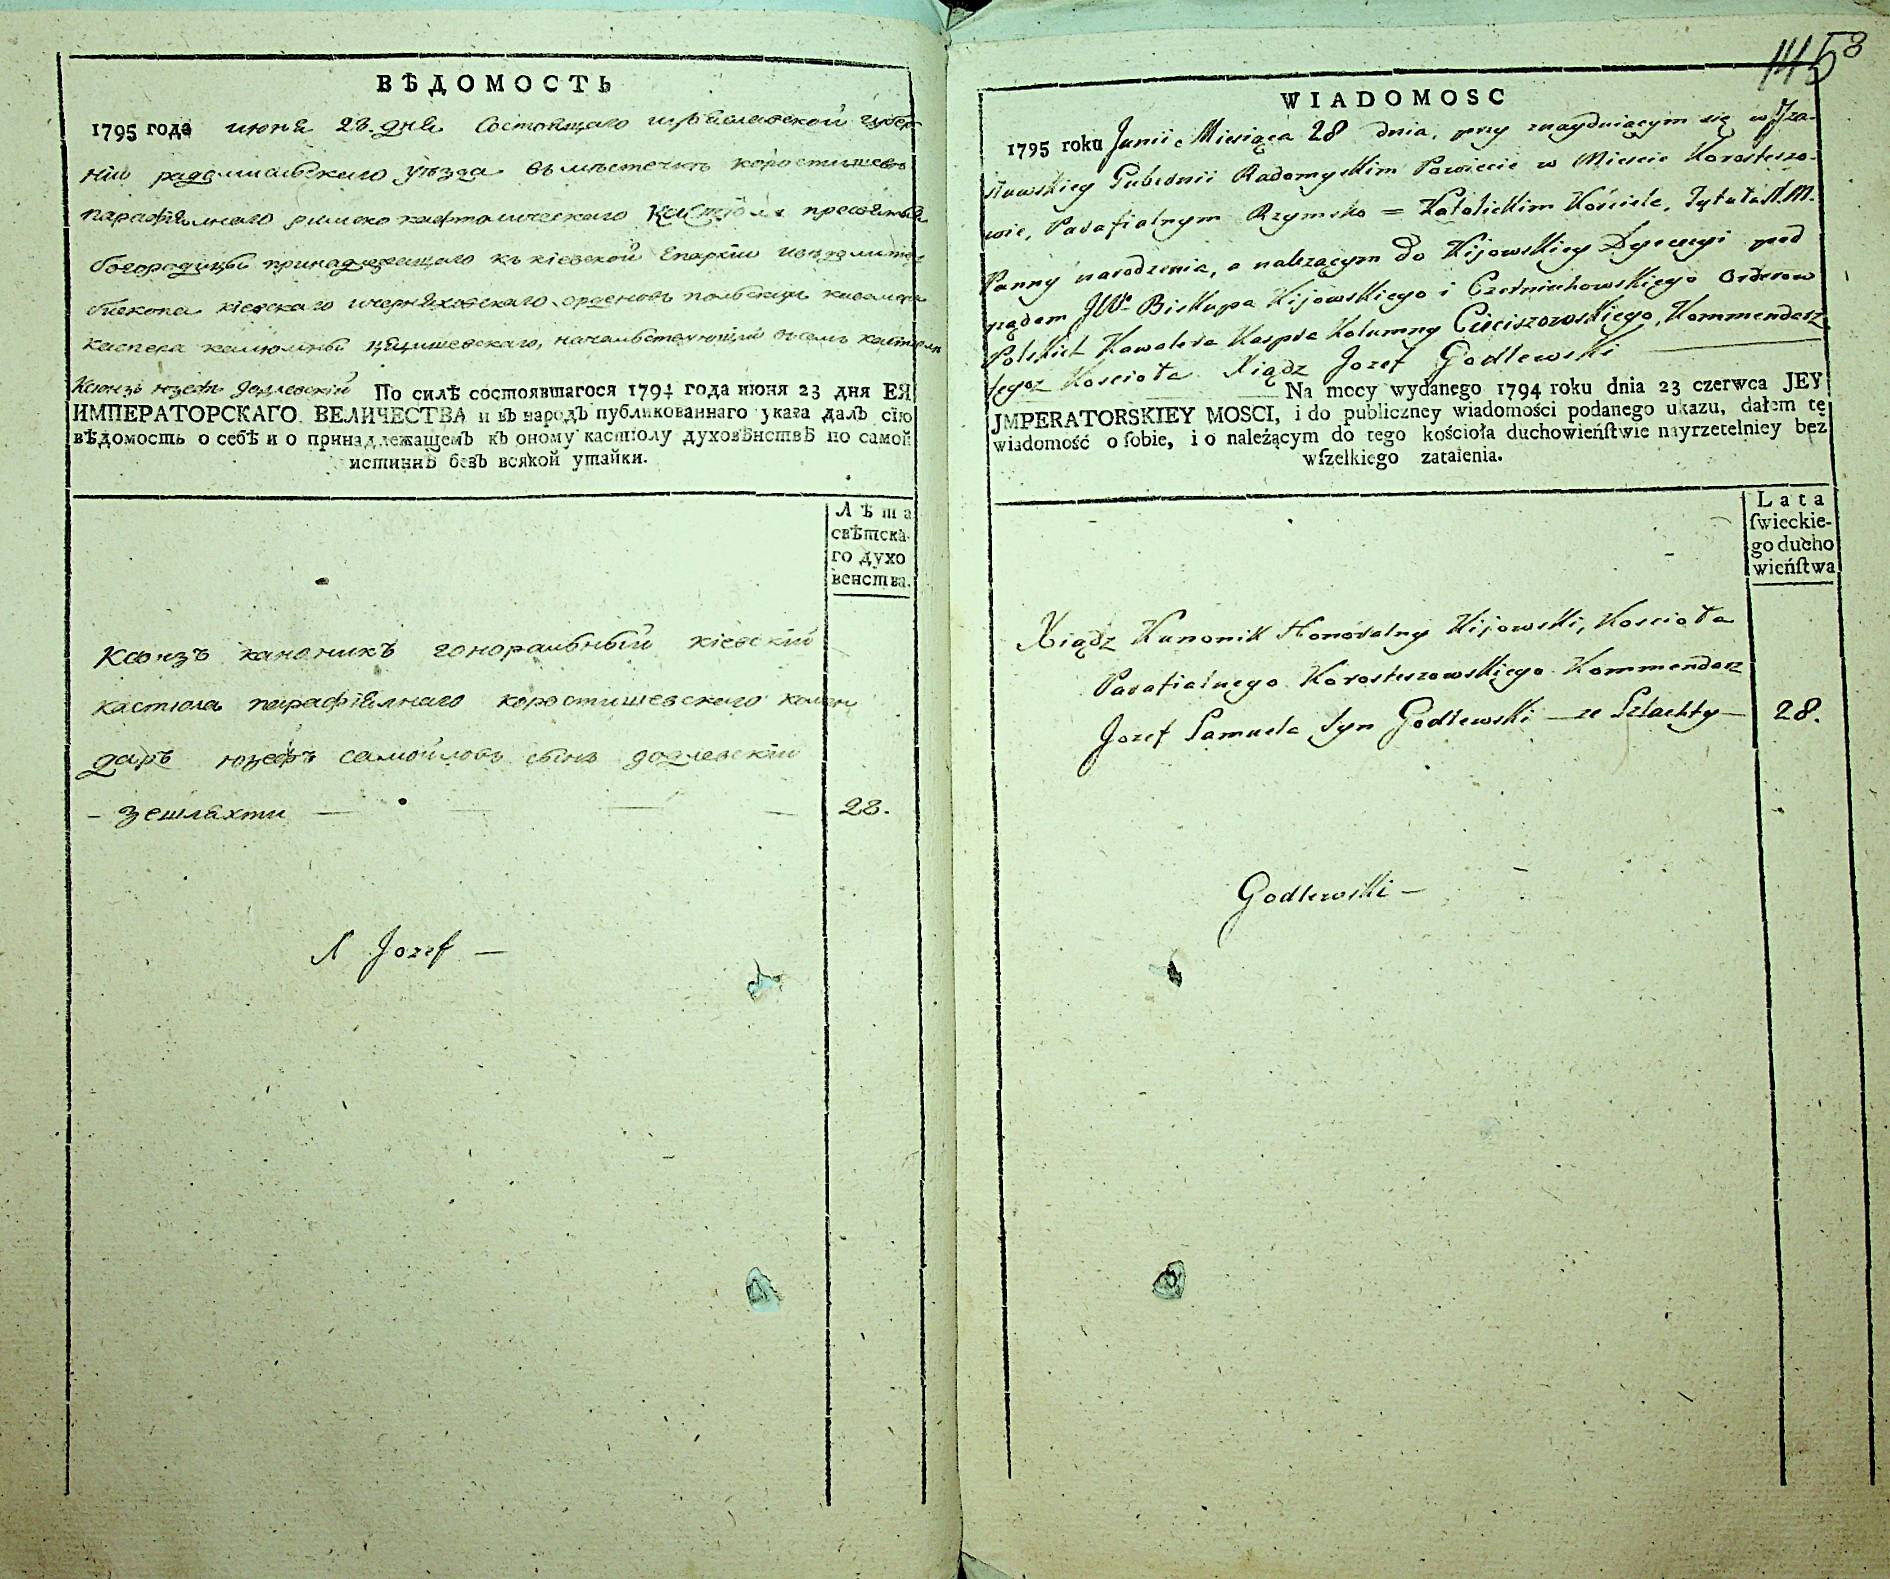 ВѢДОМОСТЬ
1795 года июня 28 дня Состоящаго изяславской губер
ніи радомисльского уѣзда въ мѣстечкѣ коростишевѣ
парафіялнаго римско кафтолическаго Кастіола пресвятыя
богородицы принадлежащаго къ кіевской Епархіи
бископа кіевскаго ичерняховскаго орденовъ польскихъ кавалера
каспера калюмны цицишевскаго, началствующий
Ксіонзъ юзефъ Годлевскій По силѣ состоявшагося 1794 года июня 23 дня ЕЯ
ИМПЕРАТОРСКАГО ВЕЛИЧЕСТВА и въ народъ публикованнаго указа далъ сїю
вѣдомость о себѣ и о принадлежащемъ къ оному кастіолу духовѣнствѣ по самой
истиннѣ безъ всякой утайки.
Лѣта
свѣтска-
го духо
венства.
Ксіонзъ каноникъ гоноральный кіевскій
кастіола парафіялнаго коростишевскаго комен
даръ юзефъ самойловъ сынъ годлевскій
– зешляхти — — — — 28.
X Jozef —
1158
WIADOMOSC
1795 roku Junii Miesiąca 28 dnia, przy znayduiącym się w Jza-
sławskiey Gubernii Radomyskim Powiecie w Miescie Korosteszo-
wie, Parafialnym Rzymsko = Katolickim Kościele, Tytułu N. M.
Panny narodzenia, a należącym do Kijowskiey Dyecezyi pod
rządem JW. Biskupa Kijowskiego i Czerniechowskiego Orderow
Polskich Kawalera Kaspra Kolumny Cieciszowskiego, Kommendarz
tegoz Koscioła Xiądz Jozef Godlewski —
Na mocy wydanego 1794 roku dnia 23 czerwca JEY
JMPERATORSKIEY MOSCI, i do publiczney wiadomości podanego ukazu, dałem tę
wiadomość o ſobie, i o należącym do tego kościoła duchowieńſtwie nayrzetelniey bez
wſzelkiego zataienia.
Lata
ſwieckie-
go ducho
wieńſtwa
Xiądz Kanonik Honoralny Kijowski, Koscioła
Parafialnego Korosteszowskiego Kommendarz
Jozef Samuela Syn Godlewski — ze Szlachty — 28.
Godlewski —